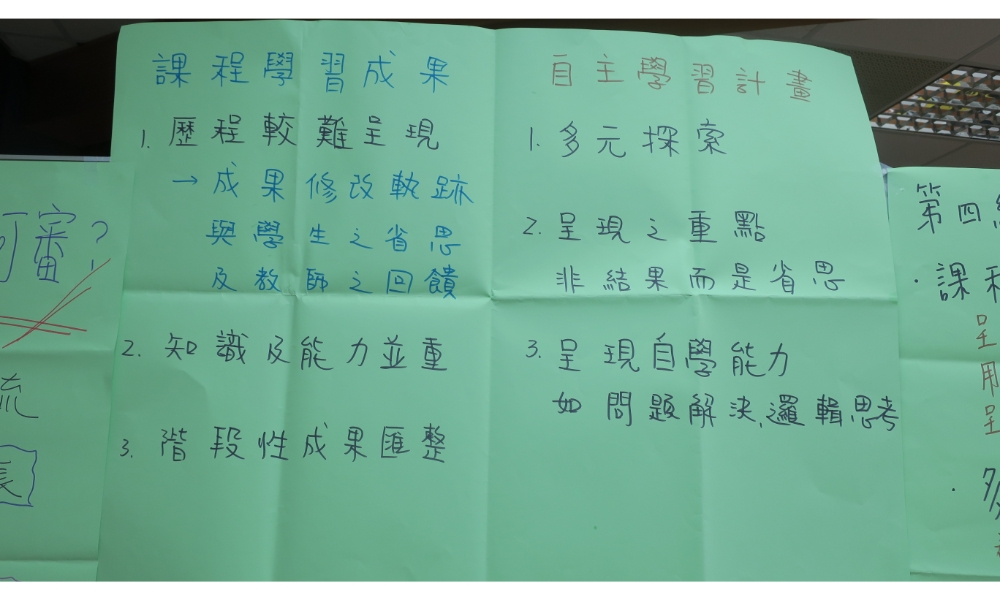 課程學習成果
1. 歷程較難呈現
→成果修改軌跡
與學生之省思
及教師之回饋
2. 知識及能力並重
3. 階段性成果匯整
自主學習計畫
1. 多元探索
2. 呈現之重點
非結果而是省思
3. 呈現自學能力
如問題解決、邏輯思考
審?
流
長
第四
·課程
呈
用
呈
·多